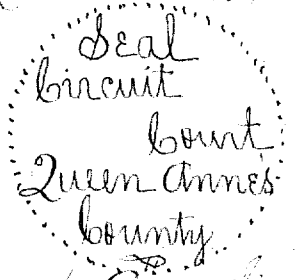 Seal
Circuit
Court
Queen Anne's
County